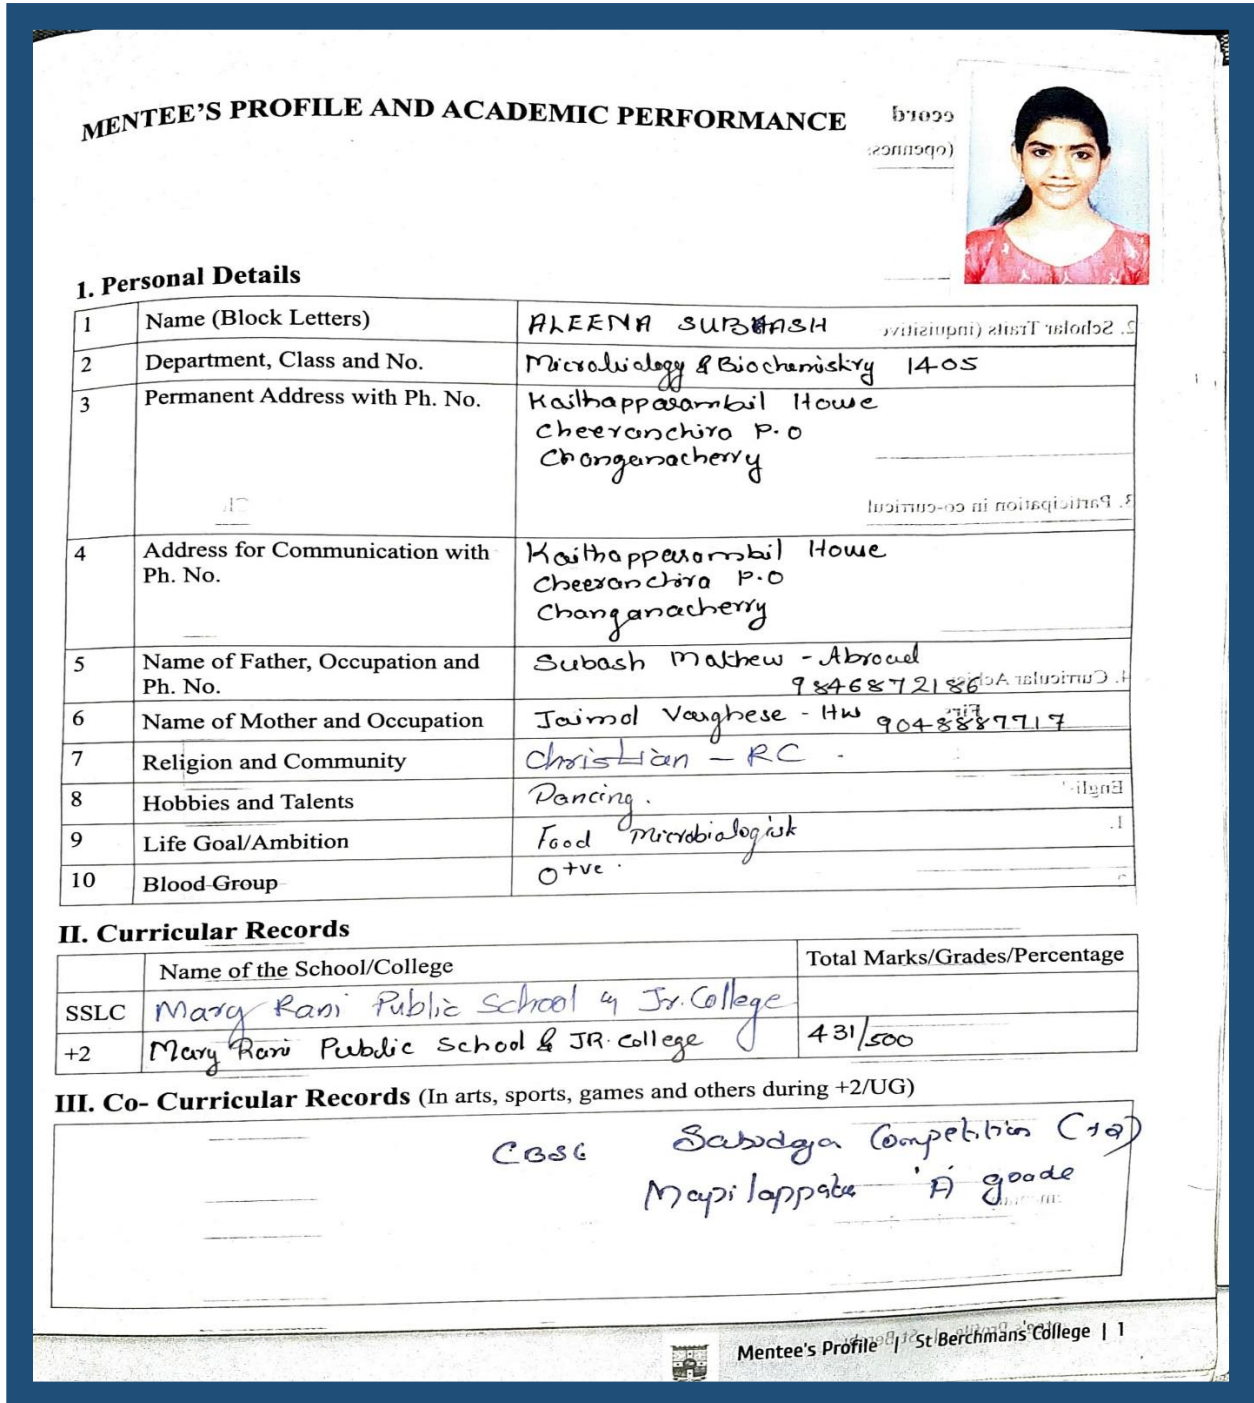 MENTEE'S PROFILE AND ACADEMIC PERFORMANCE
1. Personal Details
1 Name (Block Letters) ALEENA SUBHASH
2 Department, Class and No. Microbiology & Biochemistry 1405
3 Permanent Address with Ph. No. Kaithapparambil House
Cheeranchira P.O
Changanacherry
4 Address for Communication with Kaithapparambil House
Ph. No. Cheeranchira P.O
Changanacherry
5 Name of Father, Occupation and Subash Mathew - Abroad
Ph. No. 9846872186
6 Name of Mother and Occupation Jaimol Varghese - HW 9048887717
7 Religion and Community Christian - RC
8 Hobbies and Talents Dancing.
9 Life Goal/Ambition Food Microbiologist
10 Blood Group O+ve
II. Curricular Records
Name of the School/College Total Marks/Grades/Percentage
SSLC Mary Rani Public School & Jr. College
+2 Mary Rani Public School & JR. College 431/500
III. Co- Curricular Records (In arts, sports, games and others during +2/UG)
CBSE Competition
'A' grade
Mentee's Profile | St Berchmans College | 1